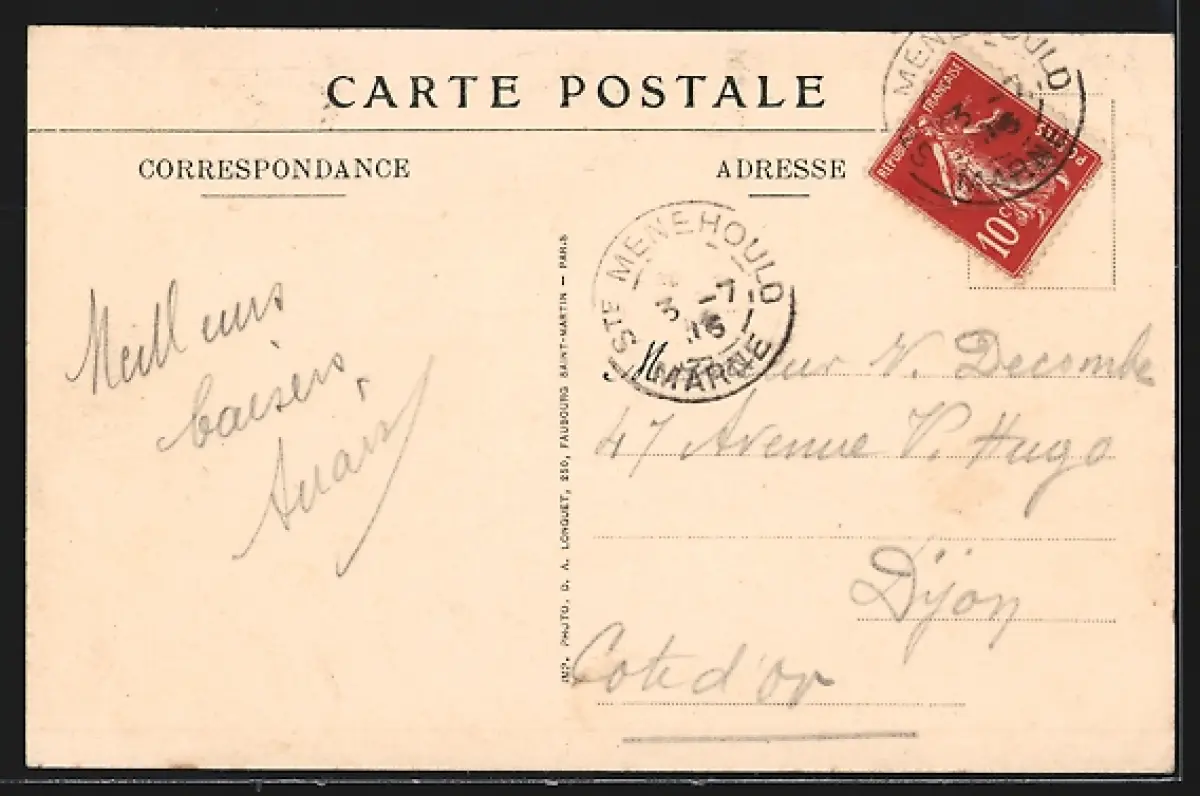 CARTE POSTALE
CORRESPONDANCE
ADRESSE
RÉPUBLIQUE FRANÇAISE
POSTES
10c
STE MENEHOULD
3 -7
MARNE
STE MENEHOULD
3 -7
MARNE
Meilleurs
baisers
IMP. PHOTO. D. A. LONGUET, 250, FAUBOURG SAINT-MARTIN — PARIS
Monsieur V. Decombe
47 Avenue V. Hugo
Dijon
Cote d'or